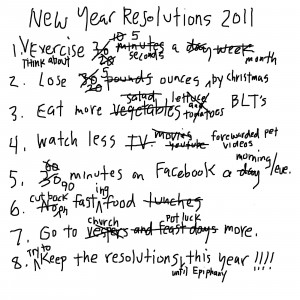 New Year Resolutions 2011
10 5
1. Exercise 30 20 minutes seconds a day week month
Think about
2. Lose 30 20 5 pounds ounces by christmas
3. Eat more vegetables salad lettuce and tomatoes BLT's
4. Watch less TV. movies youtube forewarded pet videos
5. 60 30 90 minutes on Facebook a day morning/eve.
6. No cut back on fast ing food lunches
7. Go to vespers and feast days church potluck more.
8. Try to Keep the resolutions until Epiphany this year !!!!